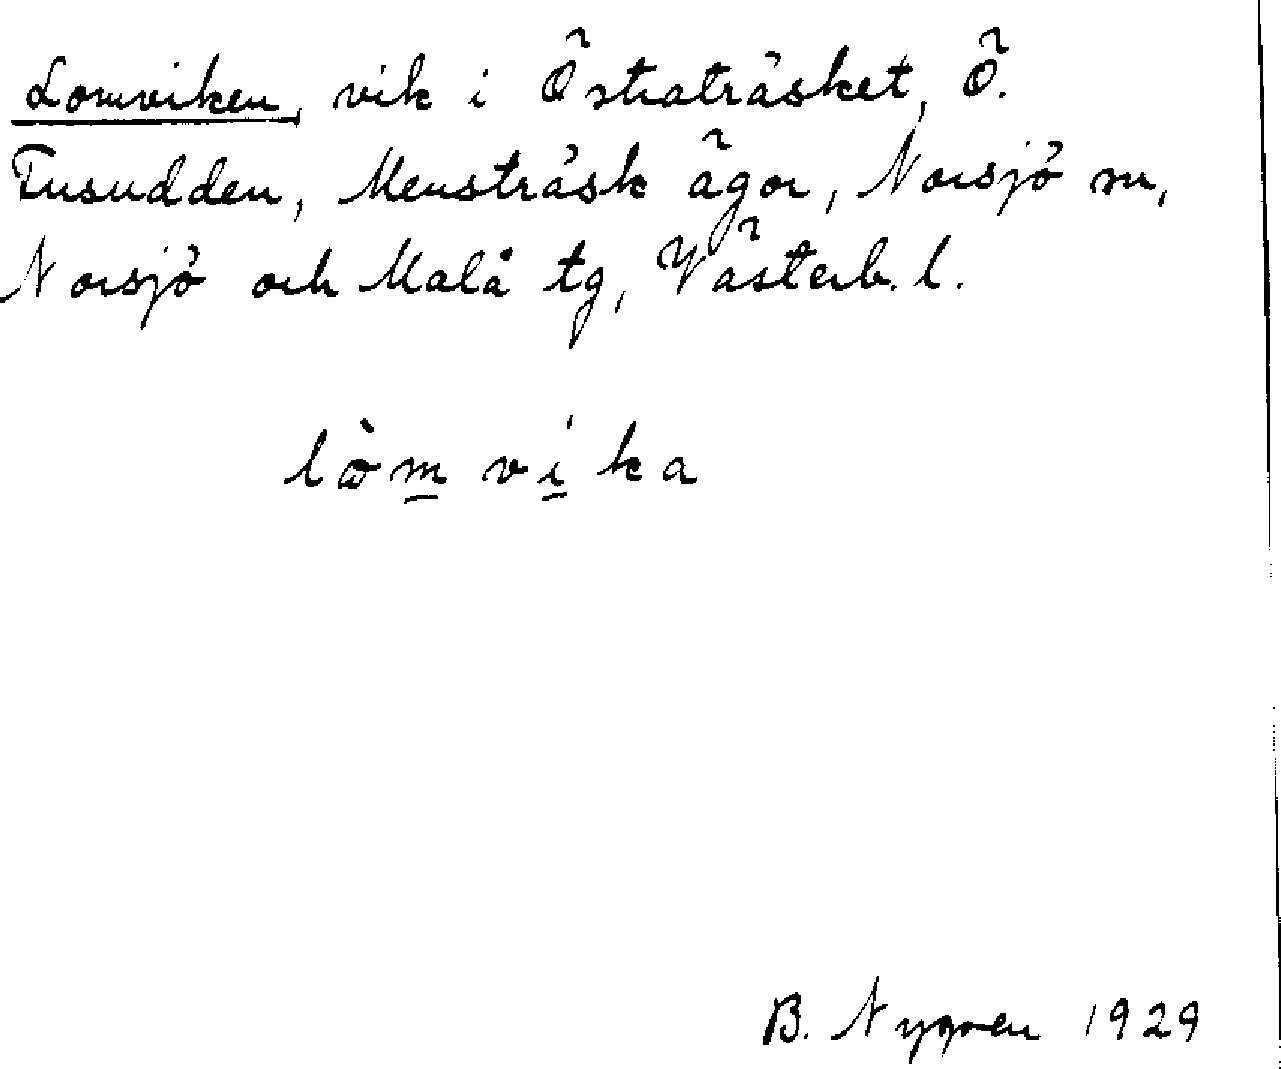 Lomviken, vik i Östraträsket, Ö.
Tusudden, Mensträsk ägor, Norsjö sn,
Norsjö och Malå tg, Västerb. l.
lòm̲ vi̲ ka
B. Nygren 1929